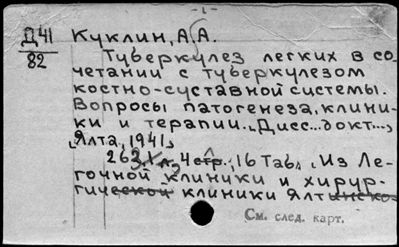 - 1 -
Д41
82
Куклин, А. А.
Туберкулез легких в со-
четании с туберкулезом
костно-суставной системы.
Вопросы патогенеза, клини-
ки и терапии. Дисс...докт...,
Ялта, 1941,
263 л., 4 стр., 16 таб., Из Ле-
гочной клиники и хирур-
гической клиники Ялтинско-
См. след. карт.